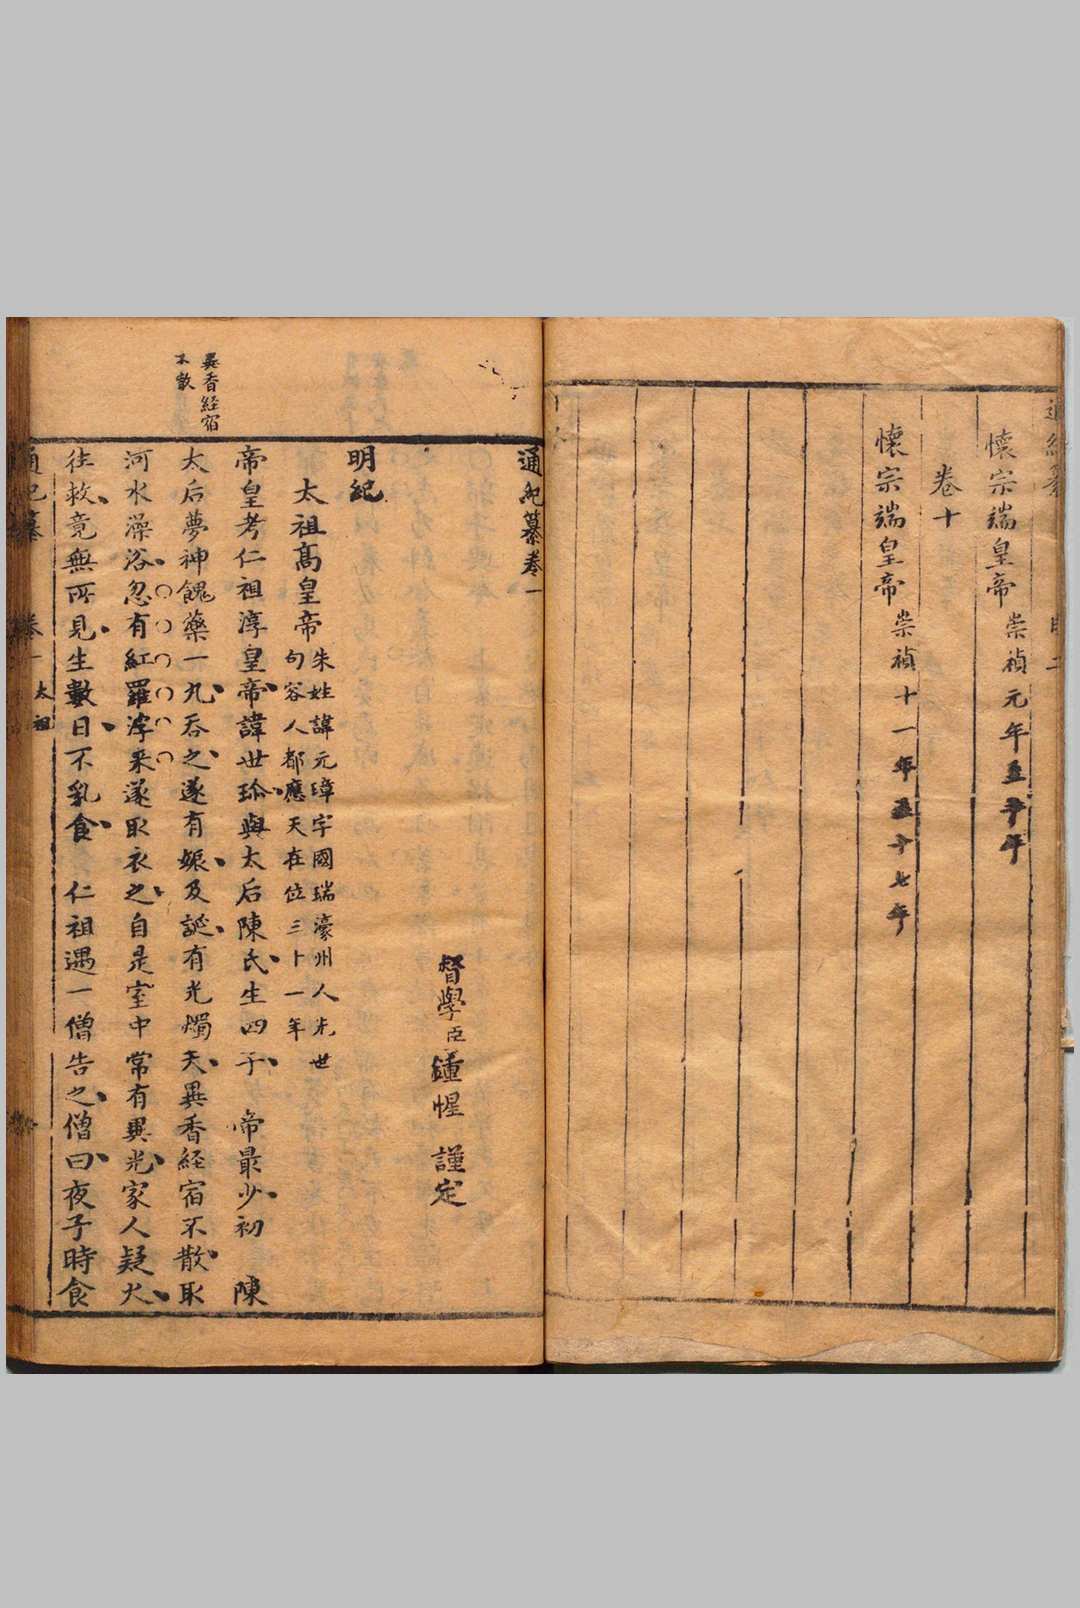 懷宗端皇帝 崇禎元年至十年
卷十
懷宗端皇帝 崇禎十一年至十七年
通紀纂卷一
督學臣鍾惺 謹定
明紀
太祖高皇帝 朱姓諱元璋字國瑞濠州人先世
句容人都應天在位三十一年
帝皇考仁祖淳皇帝諱世珍與太后陳氏生四子 帝最少初 陳
異香経宿
不散
太后夢神餽藥一丸吞之遂有娠及誕有光燭天異香経宿不散取
河水澡浴忽有紅羅浮来遂取衣之自是室中常有異光家人疑火
往救竟無所見生數日不乳食 仁祖遇一僧告之僧曰夜子時食
通紀纂 卷一 太祖